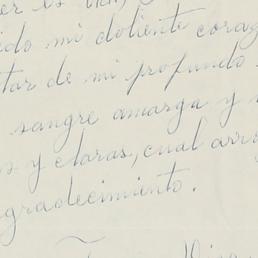 er es
ido mi doliente coraz
tar de mi profundo
sangre amarga y
s y claras, cual arro
gradecimiento.